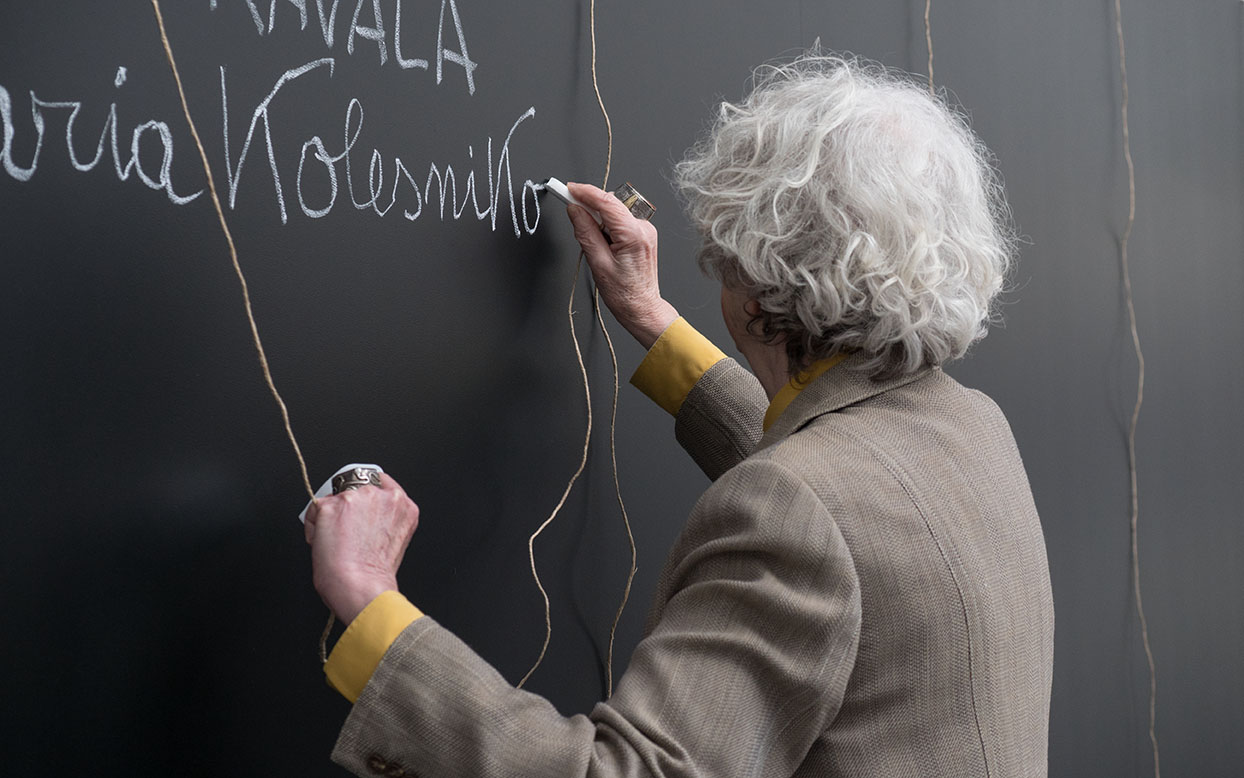 KAVALA
aria Kolesniko